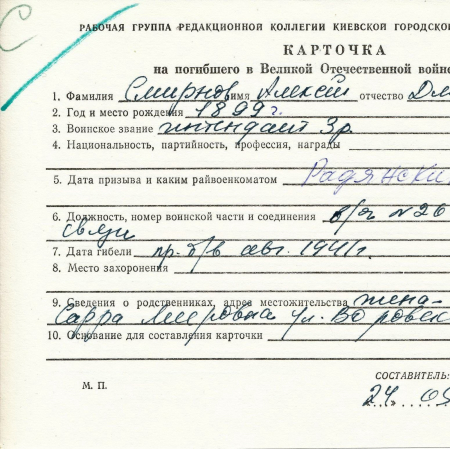 РАБОЧАЯ ГРУППА РЕДАКЦИОННОЙ КОЛЛЕГИИ КИЕВСКОЙ ГОРОДСКО
КАРТОЧКА
на погибшего в Великой Отечественной войн
1. Фамилия Смирнов имя Алексей отчество
2. Год и место рождения 1899 г.
3. Воинское звание интендант 3 р.
4. Национальность, партийность, профессия, награды
5. Дата призыва и каким райвоенкоматом Радянски
6. Должность, номер воинской части и соединения в/ч №26
связи
7. Дата гибели пр. б/в авг. 1941 г.
8. Место захоронения
9. Сведения о родственниках, адрес местожительства жена-
Сарра Меировна ул. Воровск
10. Основание для составления карточки
СОСТАВИТЕЛЬ:
М. П.
24 05